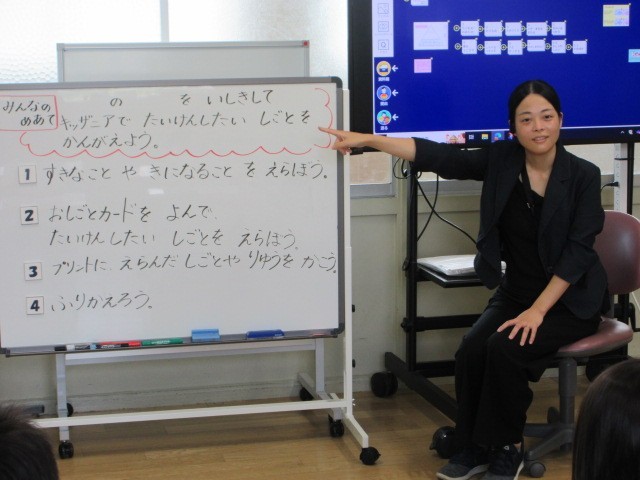 みんなの
めあて
の を いしきして
キッザニアで たいけんしたい しごとを
かんがえよう。
1 すきなこと や きになること を えらぼう。
2 おしごとカードを よんで、
たいけんしたい しごとを えらぼう。
3 プリントに、えらんだ しごとや りゆうを かこう。
4 ふりかえろう。